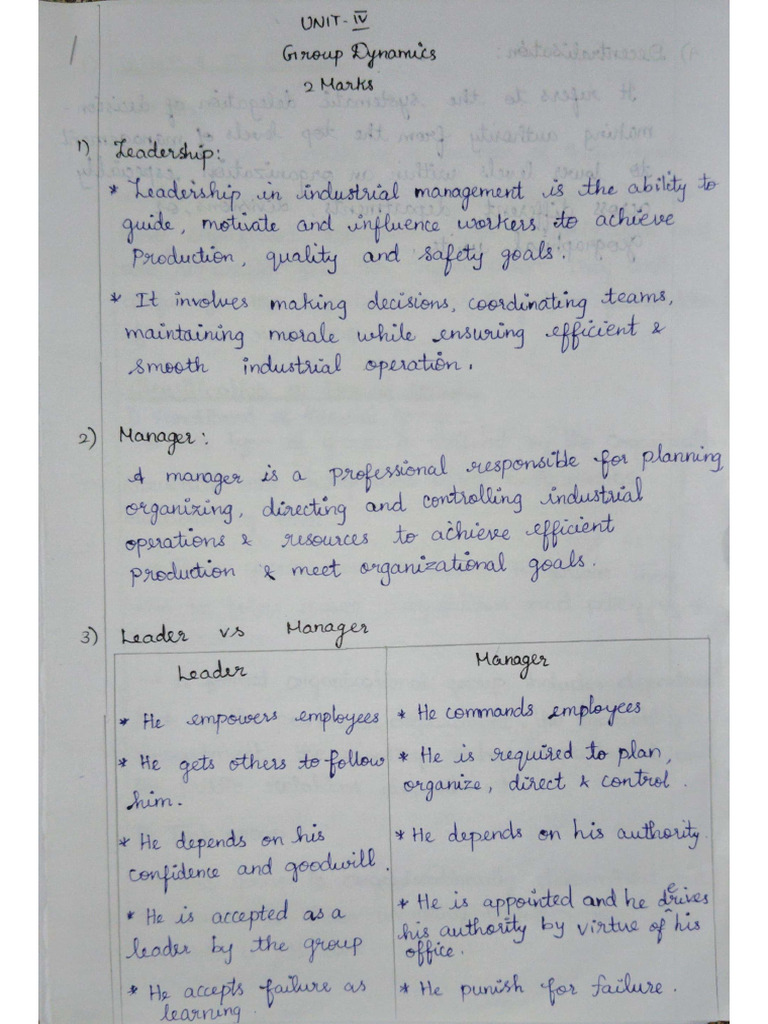 UNIT-IV
Group Dynamics
2 Marks
1) Leadership:
* Leadership in industrial management is the ability to
guide, motivate and influence workers to achieve
production, quality and safety goals.
* It involves making decisions, coordinating teams,
maintaining morale while ensuring efficient &
smooth industrial operation.
2) Manager:
A manager is a professional responsible for planning
organizing, directing and controlling industrial
operations & resources to achieve efficient
production & meet organizational goals.
3) Leader vs Manager
Leader
* He empowers employees
* He gets others to follow
him.
* He depends on his
confidence and goodwill.
* He is accepted as a
leader by the group
* He accepts failure as
learning.
Manager
* He commands employees
* He is required to plan,
organize, direct & control.
* He depends on his authority.
* He is appointed and he derives
his authority by virtue of his
office.
* He punish for failure.